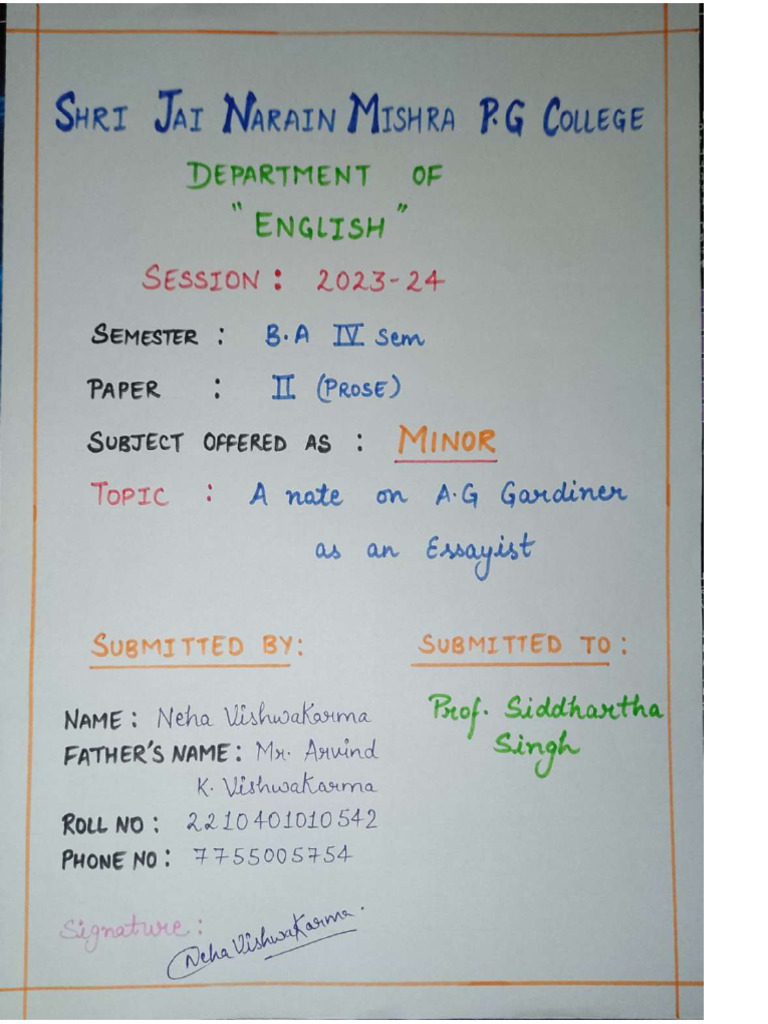 SHRI JAI NARAIN MISHRA P.G COLLEGE
DEPARTMENT OF
"ENGLISH"
SESSION : 2023-24
SEMESTER : B.A IV Sem
PAPER : II (PROSE)
SUBJECT OFFERED AS : MINOR
TOPIC : A note on A.G Gardiner
as an Essayist
SUBMITTED BY:
NAME : Neha Vishwakarma
FATHER'S NAME : Mr. Arvind
K. Vishwakarma
ROLL NO : 2210401010542
PHONE NO : 7755005754
Signature :
Neha Vishwakarma.
SUBMITTED TO :
Prof. Siddhartha
Singh